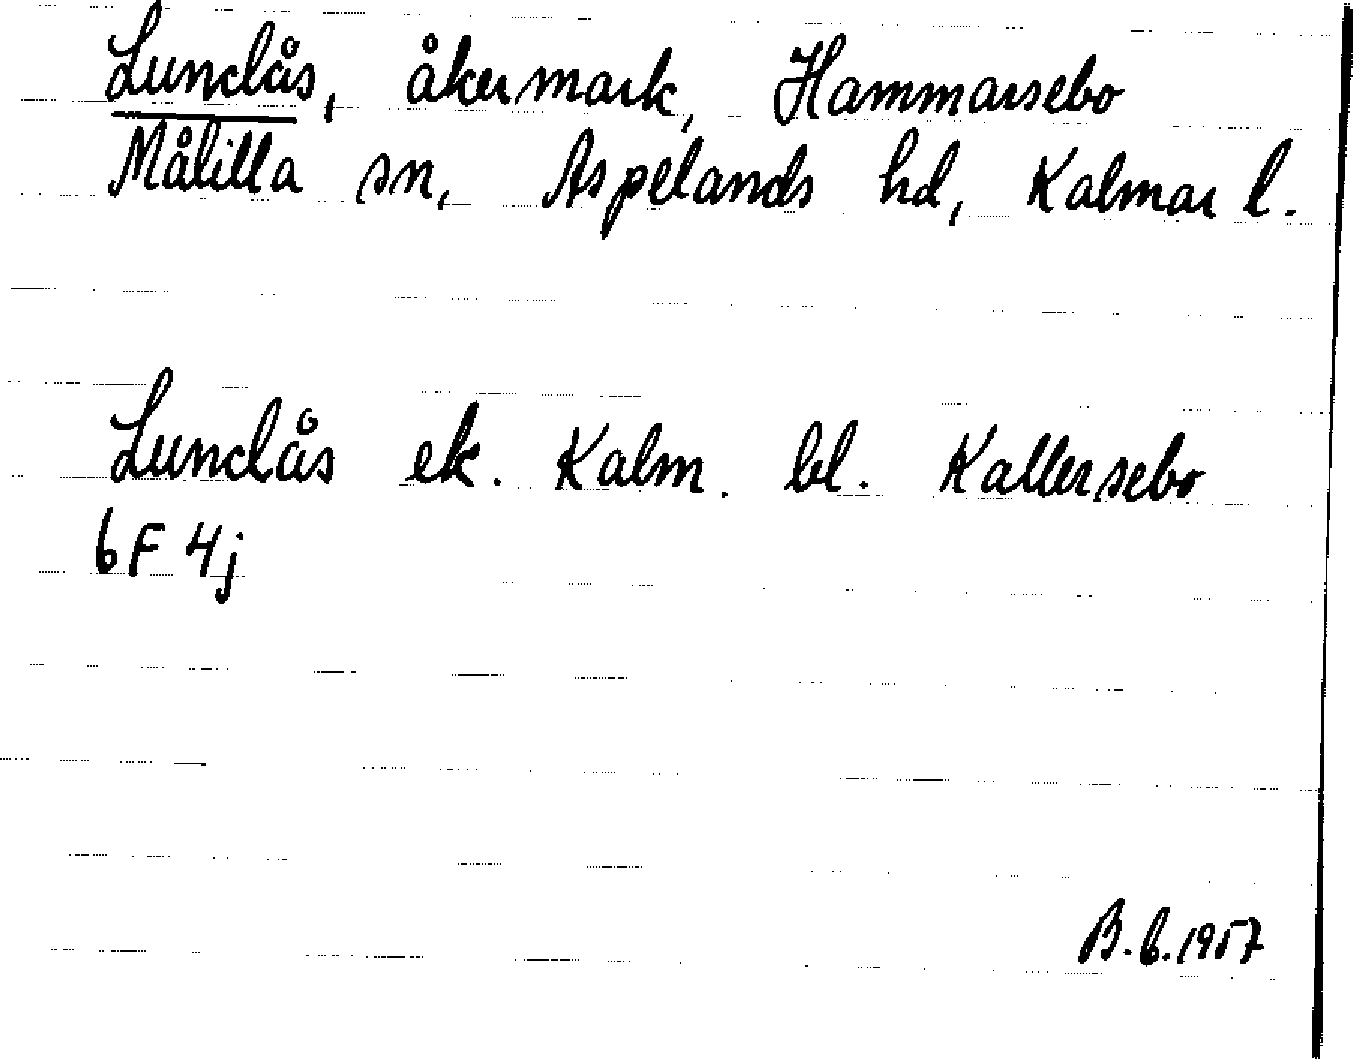 Lundås, åkermark, Hammarsebo
Målilla sn, Aspelands hd, Kalmar l.
Lundås ek. Kalm. bl. Kallersebo
6F 4j
B.G.1957